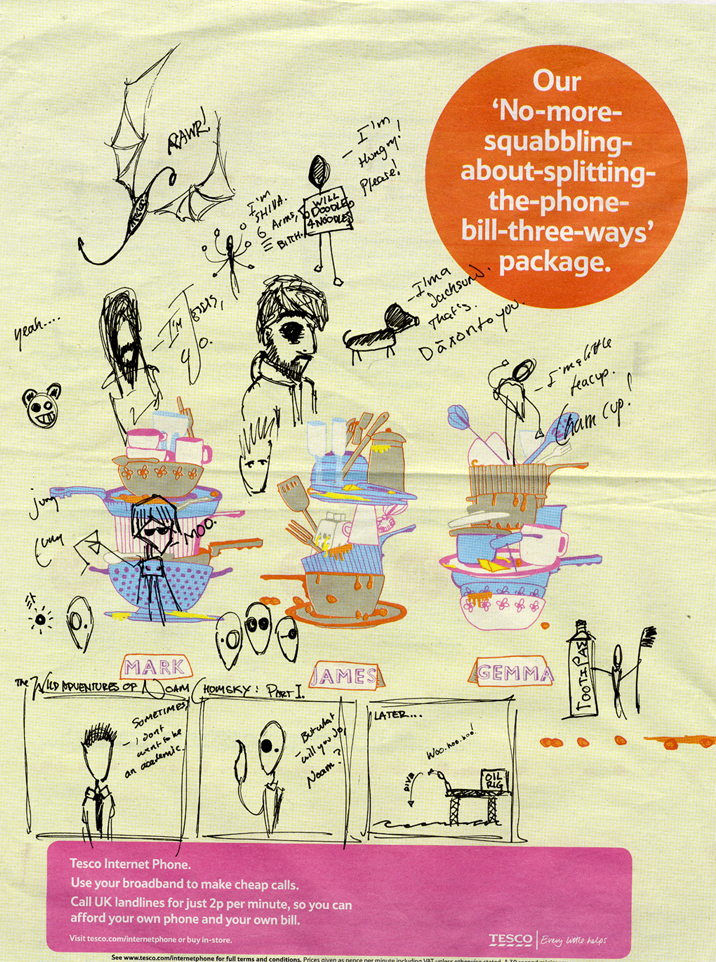 Our
'No-more-
squabbling-
about-splitting-
the-phone-
bill-three-ways'
package.
RAWR!
I'm
SHIVA.
6 Arms,
BITCH.
WILL
DOODLE
4 NOODLES
- I'm
Hungry!
Please!
yeah....
- I'm Jesus,
yo.
- I'm a
Dachsund.
That's
to you.
- I'm a little
teacup.
Cham cup!
MOO.
MARK
JAMES
GEMMA
TOOTHPASTE
THE WILD ADVENTURES OF NOAM CHOMSKY: PART I.
SOMETIMES
- I don't
want to be
an academic.
But what
will you do,
Noam?
LATER...
Woo-hoo-hoo!
DIVE
OIL
RIG
Tesco Internet Phone.
Use your broadband to make cheap calls.
Call UK landlines for just 2p per minute, so you can
afford your own phone and your own bill.
Visit tesco.com/internetphone or buy in-store.
TESCO Every little helps
See www.tesco.com/internetphone for full terms and conditions. Prices given as pence per minute including VAT unless otherwise stated.